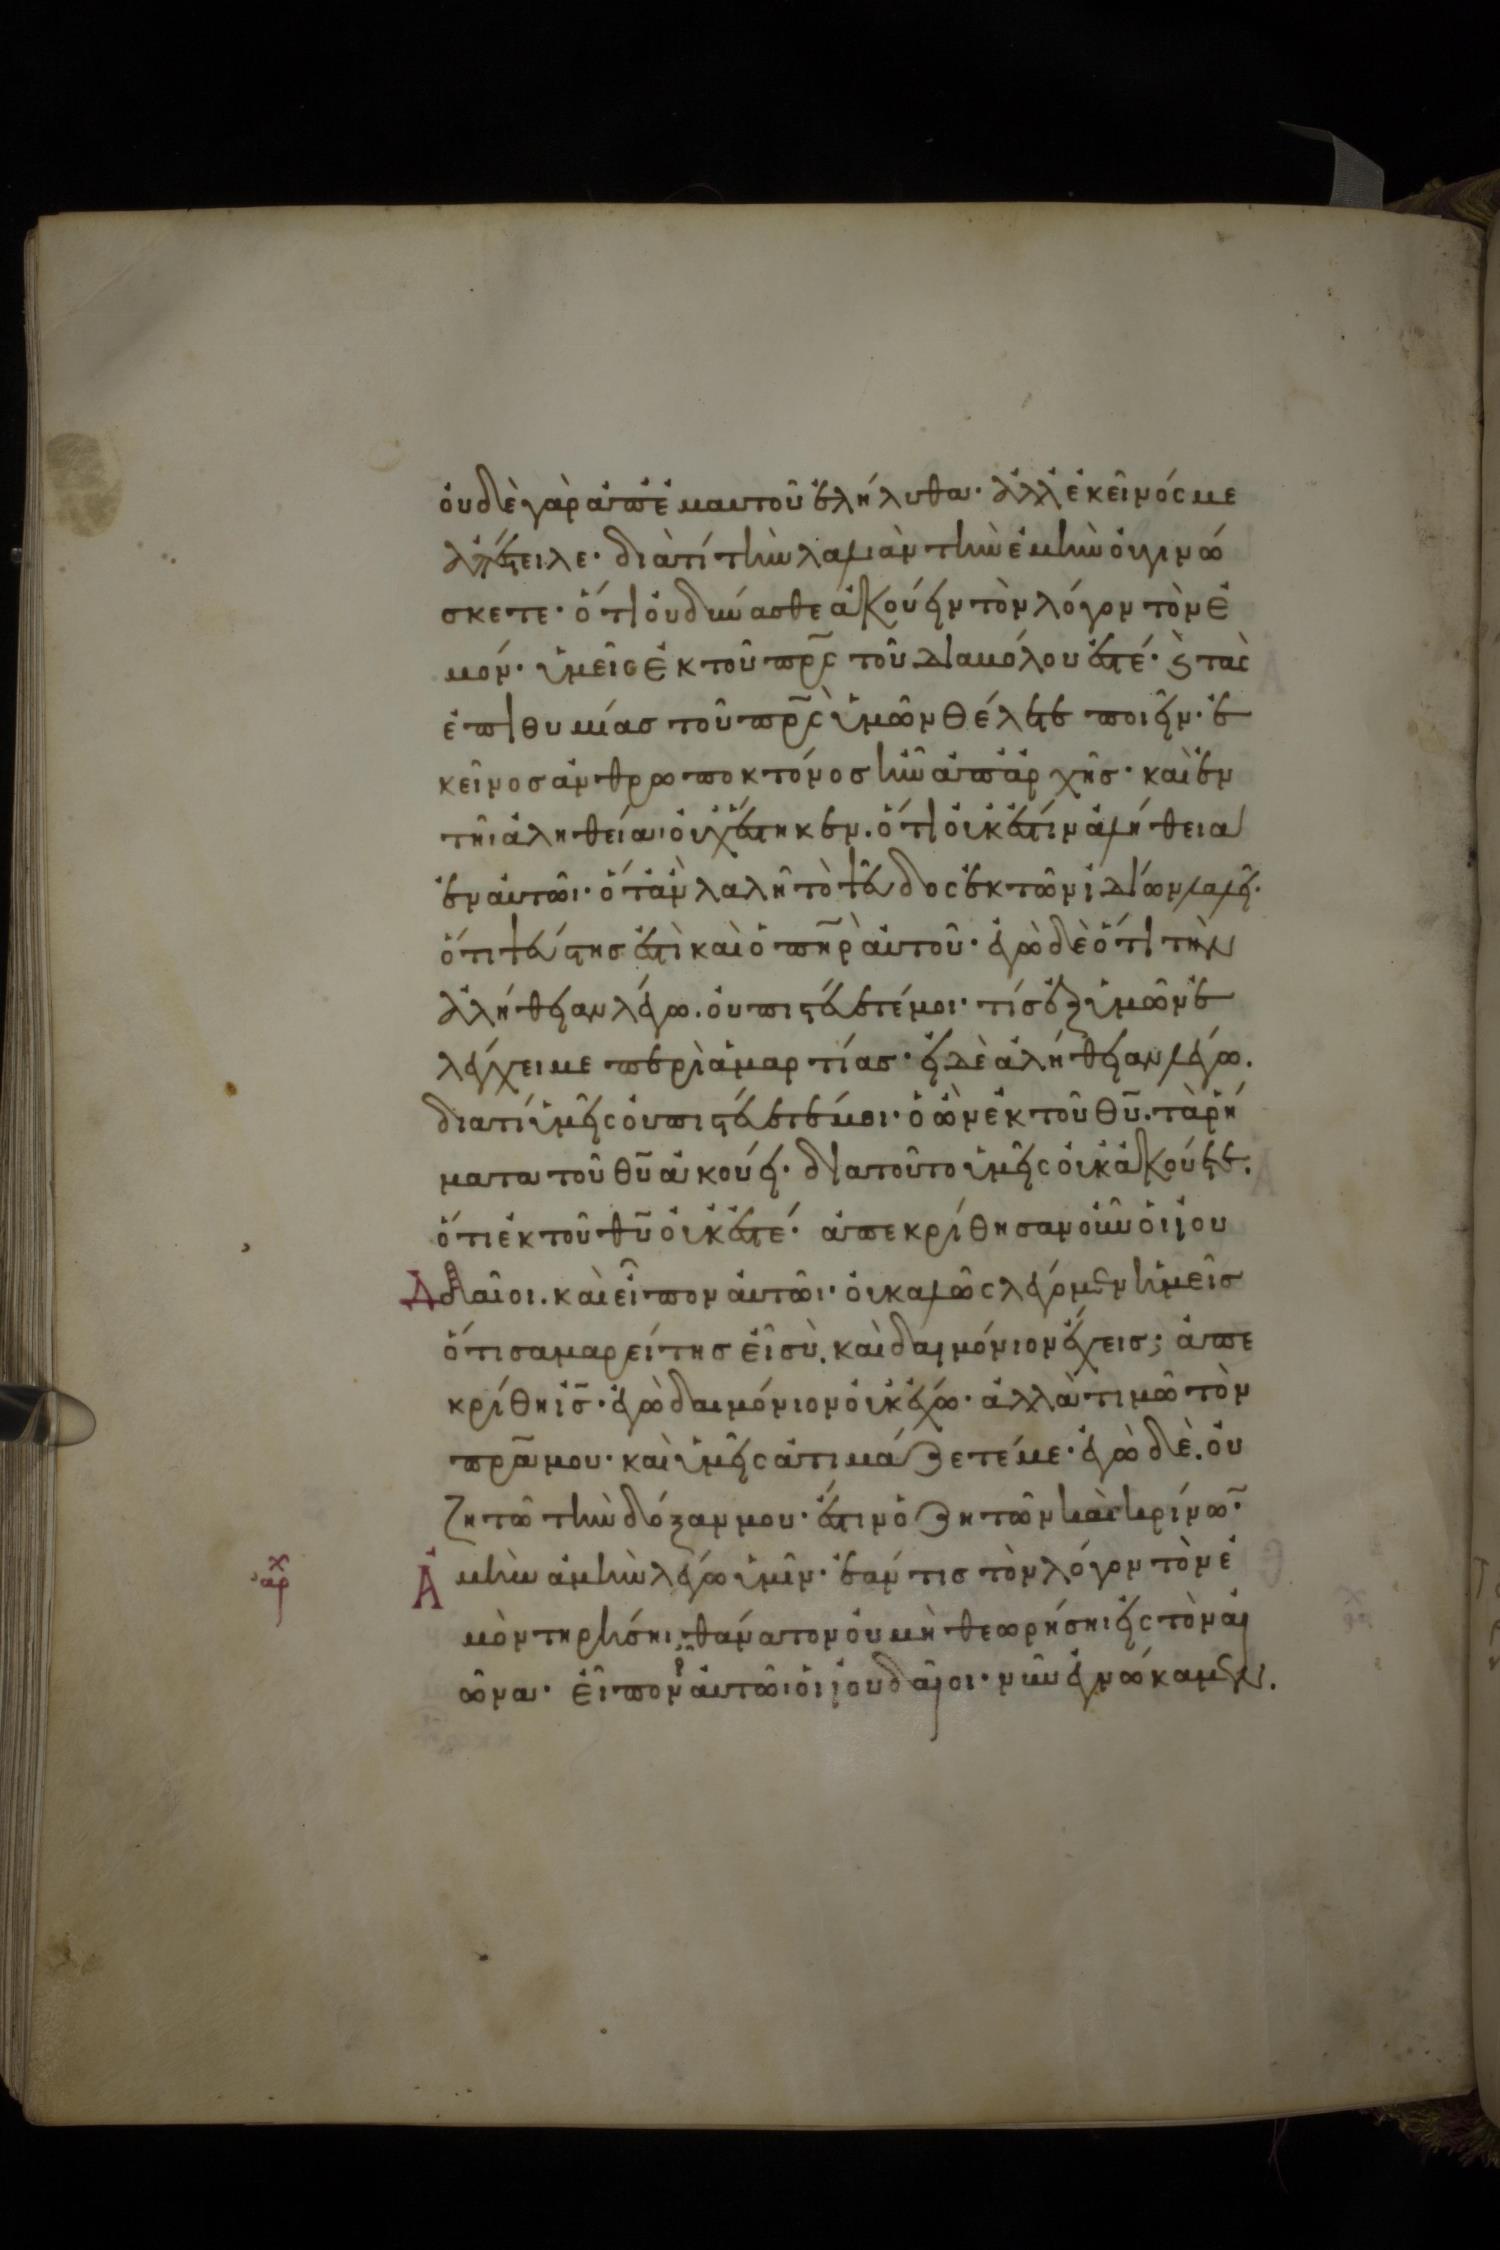 οὐδὲ γὰρ ἀπ' ἐμαυτοῦ ἐλήλυθα· ἀλλ' ἐκεῖνός με
ἀπέστειλε· διατί τὴν λαλιὰν τὴν ἐμὴν οὐ γινώ
σκετε· ὅτι οὐ δύνασθε ἀκούειν τὸν λόγον τὸν ἐ
μόν· ὑμεῖς ἐκ τοῦ πρ̅ς τοῦ διαβόλου ἐστέ· ϗ τὰς
ἐπιθυμίας τοῦ πρ̅ς ὑμῶν θέλετε ποιεῖν· ἐ
κεῖνος ἀνθρωποκτόνος ἦν ἀπ' ἀρχῆς· καὶ ἐν
τῆι ἀληθείαι οὐχ ἕστηκεν. ὅτι οὐκ ἔστιν ἀλήθεια
ἐν αὐτῶι· ὅταν λαλῆ τὸ ψεῦδος ἐκ τῶν ἰδίων λαλεῖ·
ὅτι ψεύστης ἐστὶ καὶ ὁ πη̅ρ αὐτοῦ· ἐγὼ δὲ ὅτι τὴν
ἀλήθειαν λέγω. οὐ πιστεύετέ μοι· τίς ἐξ ὑμῶν ἐ
λέγχει με περὶ ἁμαρτίας· εἰ δὲ ἀλήθειαν λέγω.
διατί ὑμεῖς οὐ πιστεύετέ μοι· ὁ ὢν ἐκ τοῦ θυ̅. τὰ ῥή
ματα τοῦ θυ̅ ἀκούει· διατοῦτο ὑμεῖς οὐκ ἀκούετε.
ὅτι ἐκ τοῦ θυ̅ οὐκ ἐστέ· ἀπεκρίθησαν οὖν οἱ ἰου
δαῖοι. καὶ εἶπον αὐτῶι· οὐ καλῶς λέγομεν ἡμεῖς
ὅτι σαμαρείτης εἶ σὺ. καὶ δαιμόνιον ἔχεις; ἀπε
κρίθη ις̅· ἐγὼ δαιμόνιον οὐκ ἔχω· ἀλλὰ τιμῶ τὸν
πρ̅α μου· καὶ ὑμεῖς ἀτιμάζετέ με· ἐγὼ δὲ. οὐ
ζητῶ τὴν δόξαν μου· ἔστιν ὁ ζητῶν καὶ κρίνω̅·
Ἀμὴν ἀμὴν λέγω ὑμῖν· ἐάν τις τὸν λόγον τὸν ἐ
μὸν τηρήσηι· θάνατον οὐ μὴ θεωρήσηι εἰς τὸν αἰ
ῶνα· εἶπον αὐτῶι οἱ ἰουδαῖοι· νῦν ἐγνώκαμεν.
ἀρχ